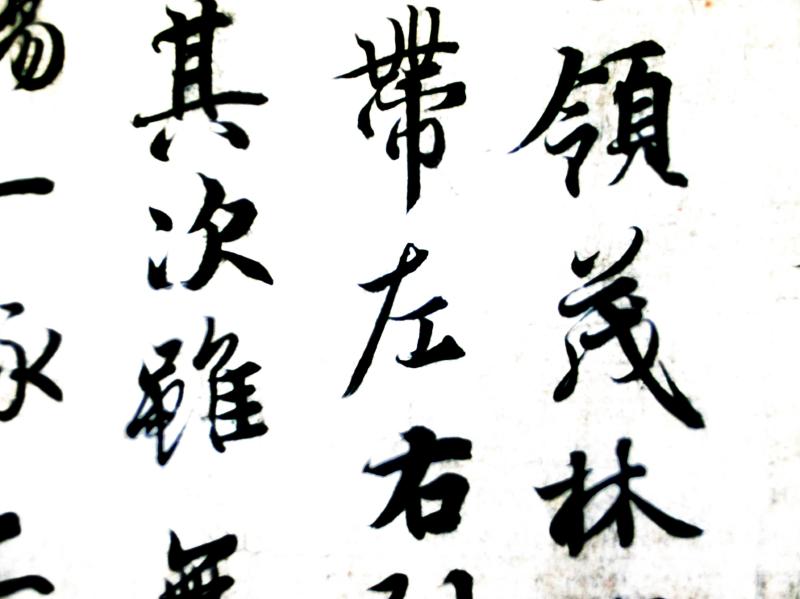 領茂林
帶左右
其次雖無
一